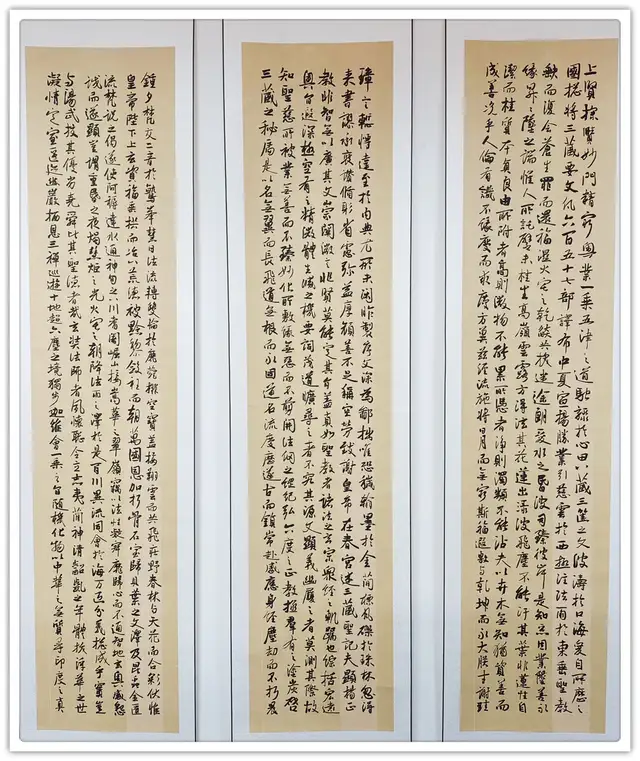 上賢探賾妙門精窮奧業一乘五津之道馳驟於心田八藏三篋之文波濤於口海爰自所歷之
國揔將三藏要文凡六百五十七部譯布中夏宣揚勝業引慈雲於西極注法雨於東垂聖教
缺而復全蒼生罪而還福濕火宅之乾燄共拔迷途朗愛水之昏波同臻彼岸是知惡因業墜善以
緣昇昇墜之端惟人所託譬夫桂生高嶺雲露方得泫其花蓮出淥波飛塵不能汙其葉非蓮性自
潔而桂質本貞良由所附者高則微物不能累所憑者淨則濁類不能沾夫以卉木無知猶資善而
成善況乎人倫有識不緣慶而求慶方冀茲經流施將日月而無窮斯福遐敷與乾坤而永大朕才謝珪
璋言慙博達至於內典尤所未閑昨製序文深為鄙拙唯恐穢翰墨於金簡標瓦礫於珠林忽得
來書謬承褒讚循躬省慮弥益厚顏善不足稱空勞致謝皇帝在春宮述三藏聖記夫顯揚正
教非智無以廣其文崇闡微言非賢莫能定其旨蓋真如聖教者諸法之玄宗衆經之軌躅也綜括宏遠
奧旨遐深極空有之精微體生滅之機要詞茂道曠尋之者不究其源文顯義幽履之者莫測其際故
知聖慈所被業無善而不臻妙化所敷緣無惡而不翦開法網之綱紀弘六度之正教拯羣有之塗炭啓
三藏之秘扃是以名無翼而長飛道無根而永固道名流慶歷遂古而鎮常赴感應身經塵劫而不朽晨
鍾夕梵交二音於鷲峯慧日法流轉雙輪於鹿菀排空寶蓋接翔雲而共飛莊野春林與天花而合彩伏惟
皇帝陛下上玄資福垂拱而治八荒德被黔黎斂衽而朝萬國恩加朽骨石室歸貝葉之文澤及昆蟲金匱
流梵說之偈遂使阿耨達水通神甸之八川耆闍崛山接嵩華之翠嶺竊以法性凝寂靡歸心而不通智地玄奧感懇
誠而遂顯豈謂重昏之夜燭慧炬之光火宅之朝降法雨之澤於是百川異流同會於海萬區分義揔成乎實豈
與湯武挍其優劣堯舜比其聖德者哉玄奘法師者夙懷聰令立志夷簡神清齠齔之年體拔浮華之世
凝情定室匿迹幽巖栖息三禪巡遊十地超六塵之境獨步迦維會一乘之旨隨機化物以中華之無質尋印度之真